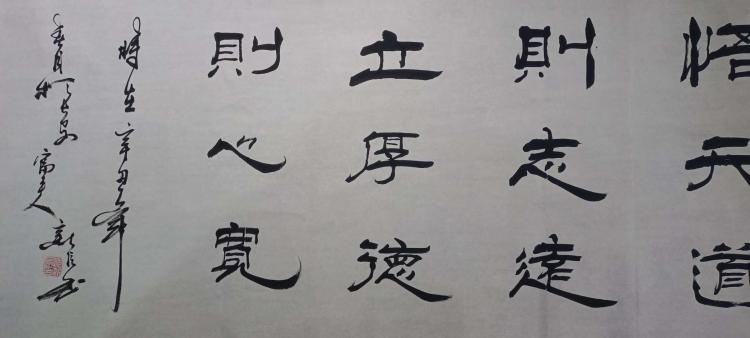 悟天道
則志遠
立厚德
則心寬
時在辛丑年
春月於長安
富夫人